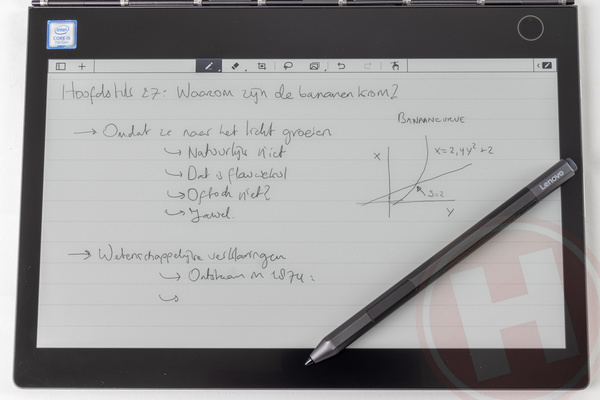 intel
CORE i5
Hoofdstuk 27: Waarom zijn de bananen krom?
→ Omdat ze naar het licht groeien
↳ Natuurlijk niet
↳ Dat is flauwekul
↳ Of toch niet?
↳ Jawel.
BANAANCURVE
X
x=2,4y²+2
S=2
y
→ Wetenschappelijke verklaringen
↳ Ontstaan in 1874:
↳
Lenovo
H